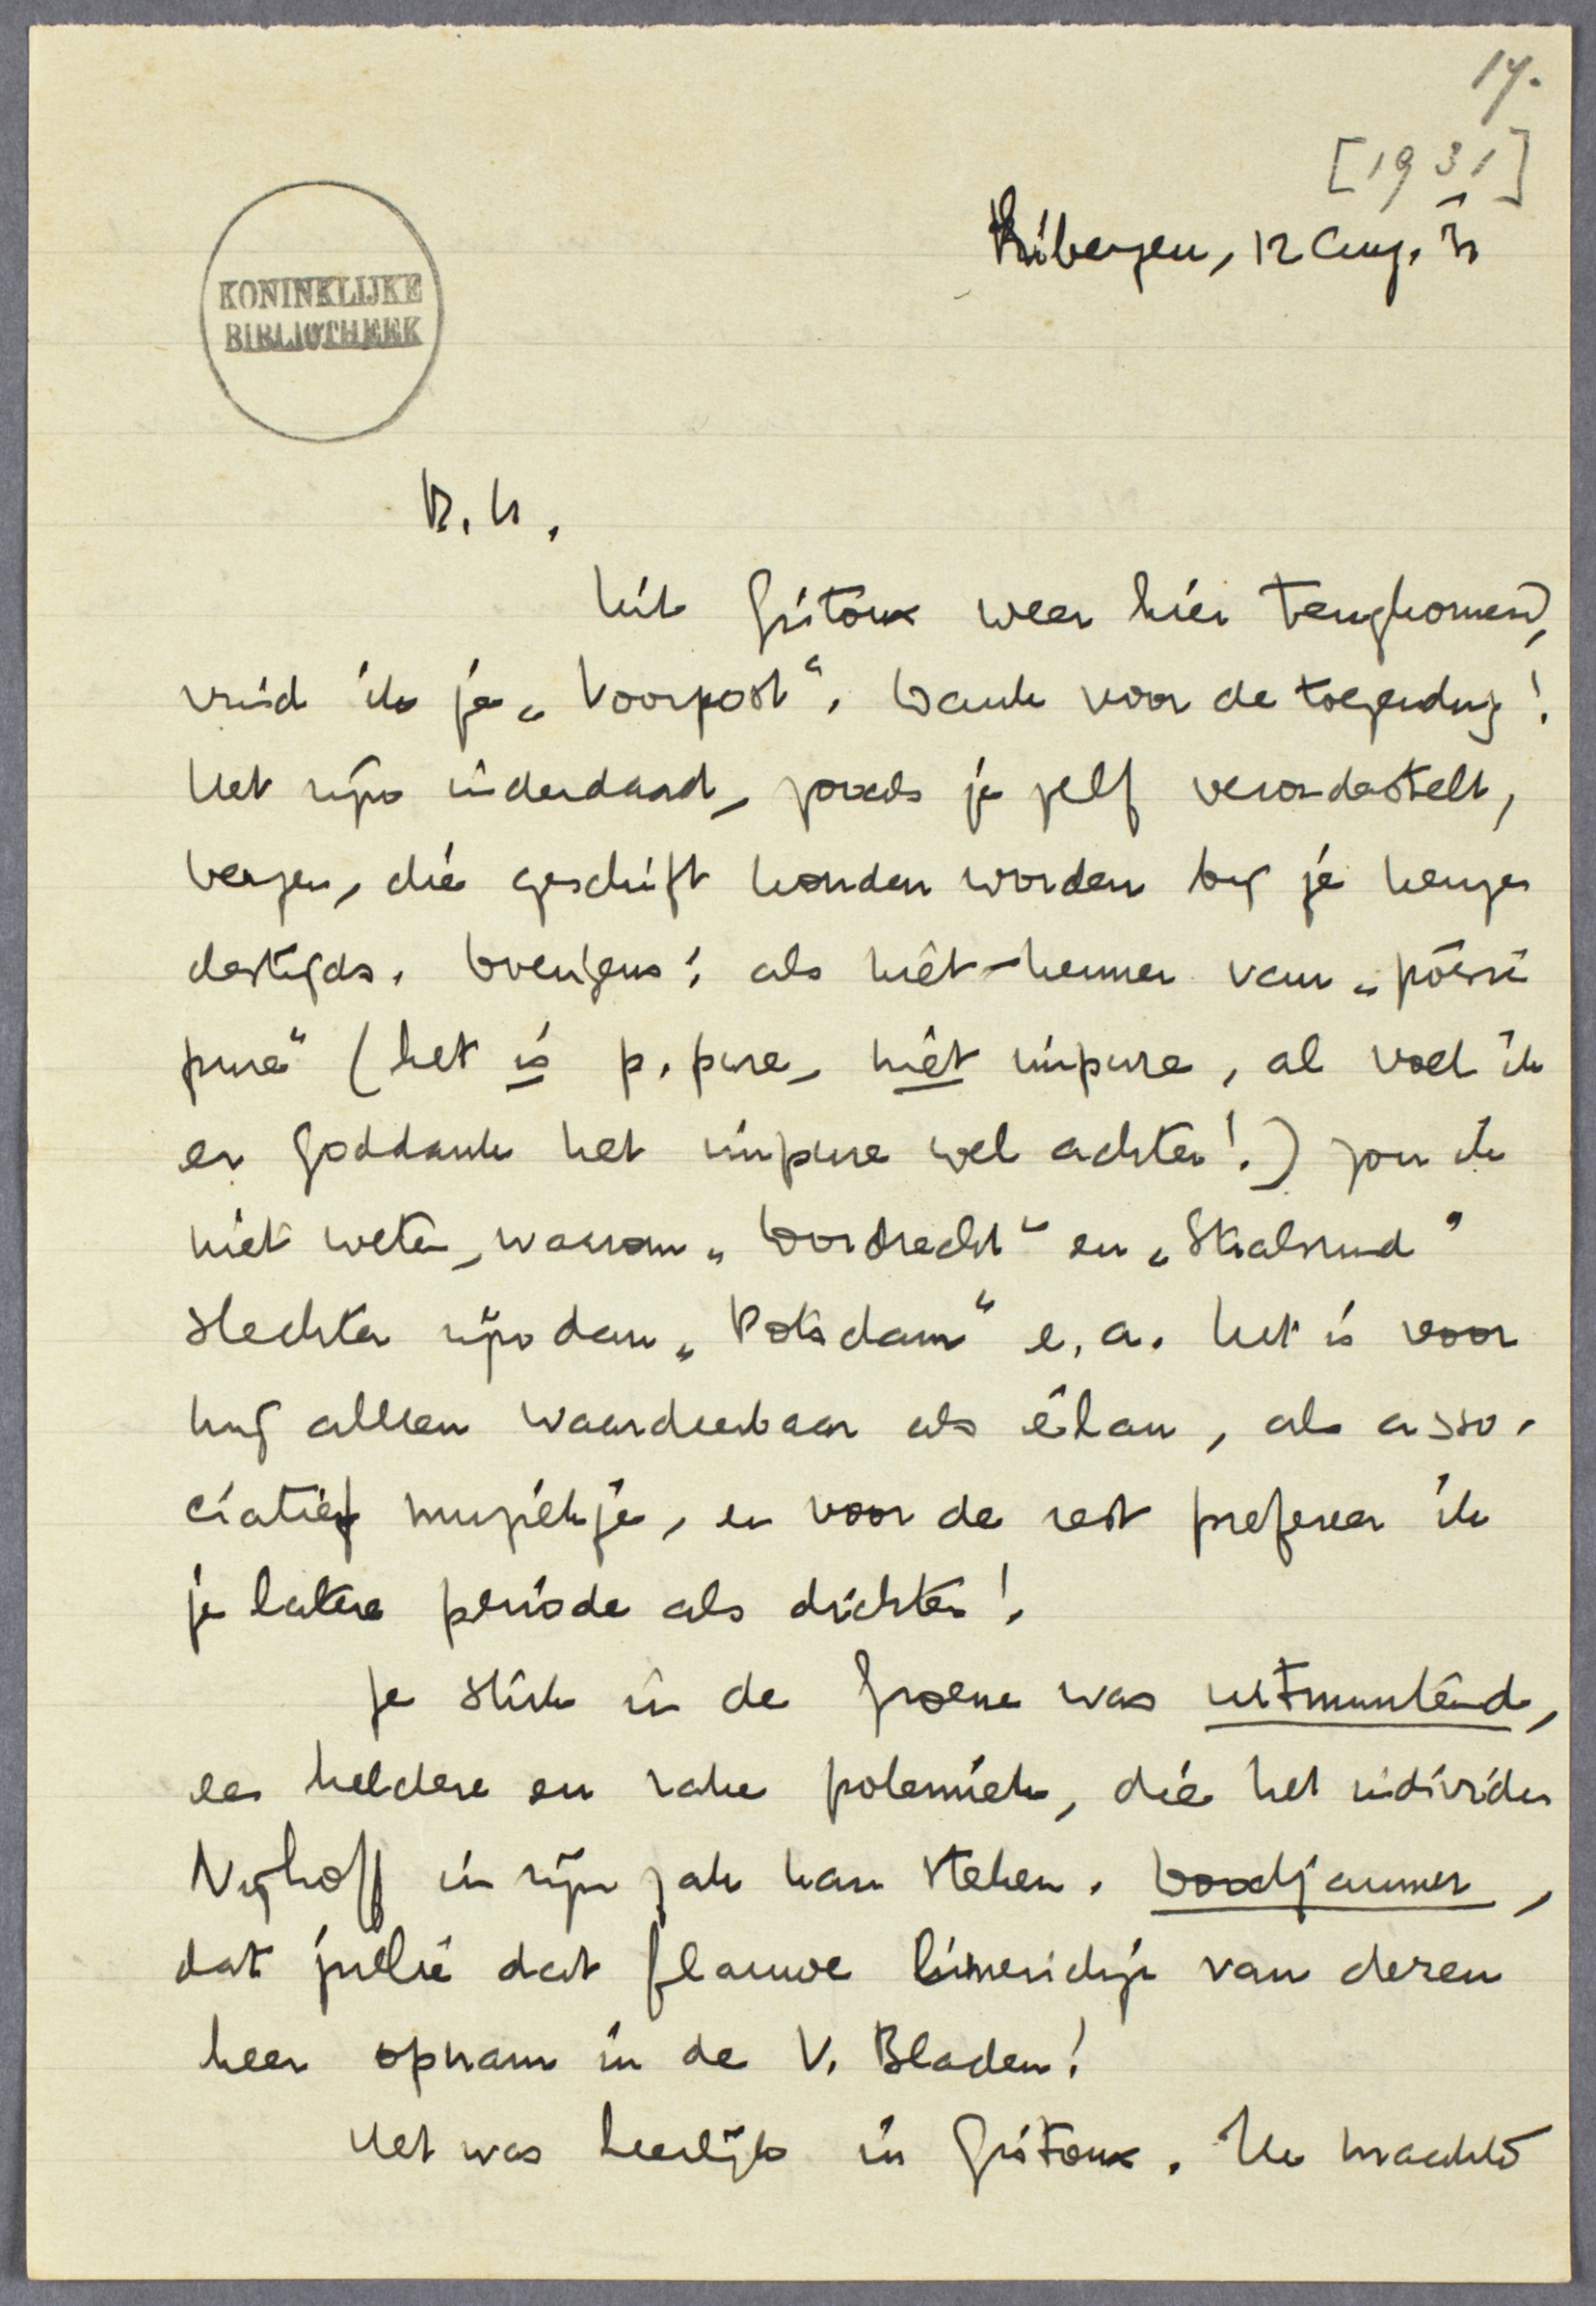 14.
[1931]
Eibergen, 12 Aug. 31
KONINKLIJKE
BIBLIOTHEEK
B. H.,
Uit Gistoux weer hier terugkomend,
vind ik je „Voorpost". Dank voor de toezending!
Het zijn inderdaad, zooals je zelf veronderstelt,
verzen, die geschift konden worden bij je keuze
destijds. Overigens: als niet-kenner van „poésie
pure" (het is p. pure, niet impure, al voel ik
er Goddank het impure wel achter!) zou ik
niet weten, waarom „Dordrecht" en „Stralsund"
slechter zijn dan „Potsdam" e.a. Het is voor
mij alleen waardeerbaar als élan, als asso-
ciatief muziekje, en voor de rest prefereer ik
je latere periode als dichter!
Je stuk in de Groene was uitmuntend,
een heldere en rake polemiek, die het individu
Nijhoff in zijn zak kan steken. Doodjammer,
dat jullie dat flauwe limerickje van dezen
heer opnam in de V. Bladen!
Het was heerlijk in Gistoux. Ik bracht